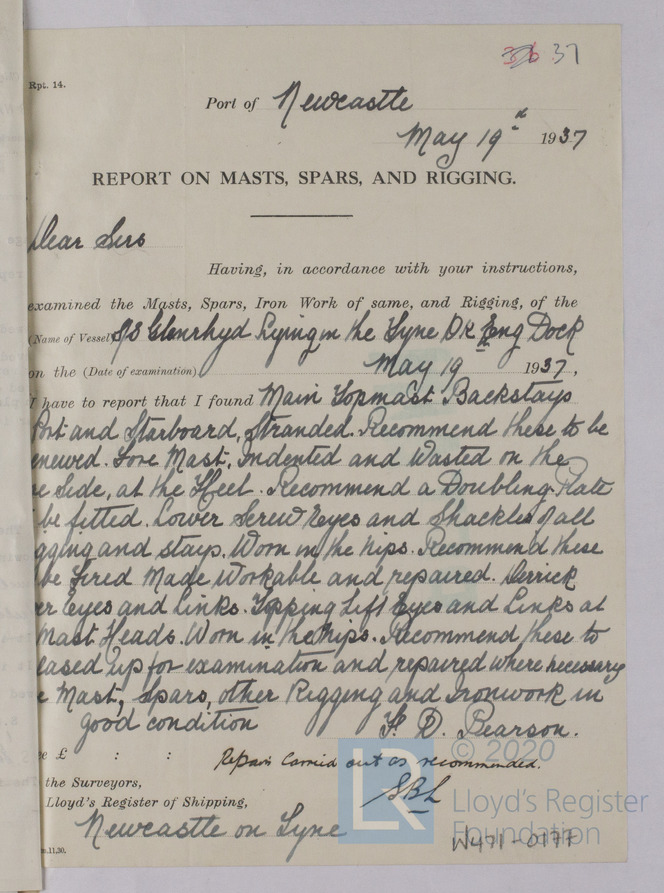 36 37
Rpt. 14.
Port of Newcastle
May 19th 1937
REPORT ON MASTS, SPARS, AND RIGGING.
Dear Sirs
Having, in accordance with your instructions,
examined the Masts, Spars, Iron Work of same, and Rigging, of the
(Name of Vessel) S/S Glenrhyd Lying in the Tyne Dk Eng Dock
on the (Date of examination) May 19 1937,
I have to report that I found Main Topmast Backstays
Port and Starboard, Stranded. Recommend these to be
enewed. Fore Mast, Indented and Wasted on the
e Side, at the Heel. Recommend a Doubling Plate
be fitted. Lower Screw Eyes and Shackles of all
gging and stays. Worn in the Nips. Recommend these
be Fired Made Workable and repaired. Derrick
er Eyes and Links. Topping Lift Eyes and Links at
Mast Heads. Worn in the Nips. Recommend these to
eased up for examination and repaired where necessary
e Mast, Spars, other Rigging and Ironwork in
good condition F. D. Pearson.
ee £ : :
Repairs carried out as recommended.
the Surveyors, SBL
Lloyd's Register of Shipping,
Newcastle on Tyne
m.11,30.
LR
© 2020
Lloyd's Register
Foundation
W471-0177